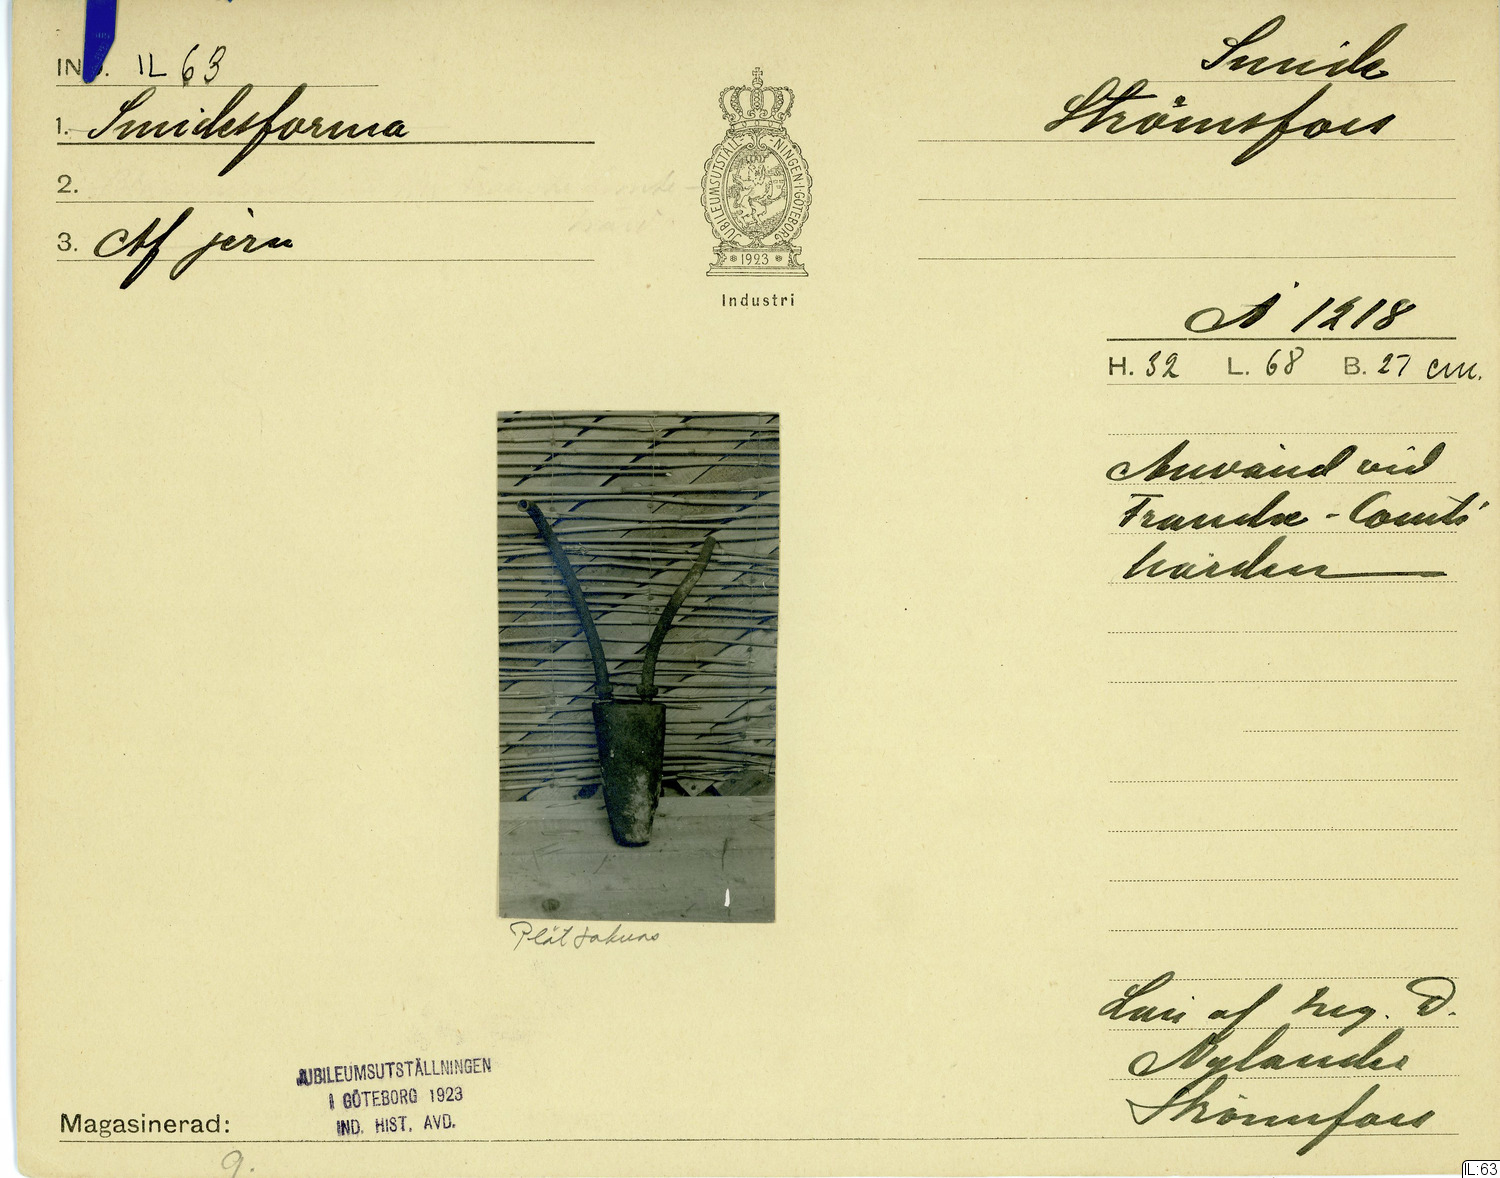 IND. IL 63
1. Smidesforma
2.
3. Af jern
JUBILEUMSUTSTÄLL-NINGEN·I·GÖTEBORG
1923
Industri
Smide
Strömsfors
N 1218
H. 32 L. 68 B. 27 cm.
Använd vid
Franche-Comté
härden
Plåt saknas
Lån af Ing. D.
Nylander
Strömsfors
JUBILEUMSUTSTÄLLNINGEN
I GÖTEBORG 1923
IND. HIST. AVD.
Magasinerad:
9.
IL:63